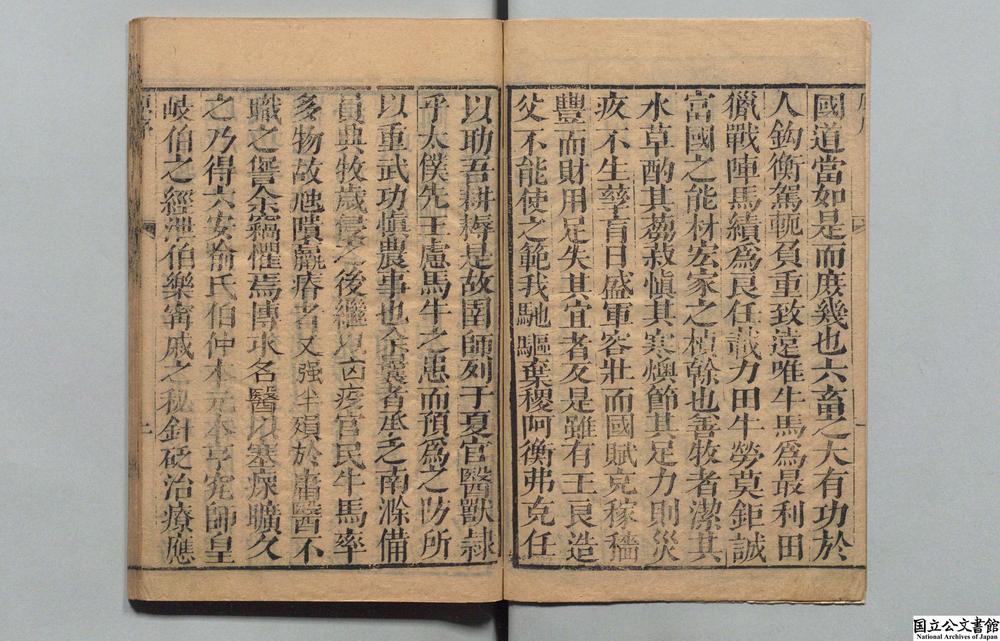 國道當如是而庶幾也六畜之大有功於
人鈎衡駕軛負重致遠唯牛馬爲最利田
獵戰陣馬績爲良任載力田牛勞莫鉅誠
富國之能材宏家之楨榦也善牧者潔其
水草酌其芻菽愼其寒燠節其足力則災
疚不生孳育日盛軍容壯而國賦克稼穡
豐而財用足失其宜者反是雖有王良造
父不能使之範我馳驅棄稷阿衡弗克任
以助吾耕耨是故圉師列于夏官醫獸隷
乎太僕先王慮馬牛之患而預爲之防所
以重武功愼農事也余囊者承之南滁備
員典牧歲之後繼疫官民牛馬率
多物故虺隤羸瘠者又强半殞於庸醫不
職之咎余竊懼焉博求名醫以塞瘝曠久
之乃得六安喻氏伯仲本元本亨究師皇
岐伯之經泄伯樂甯戚之秘針砭治療應
国立公文書館
National Archives of Japan